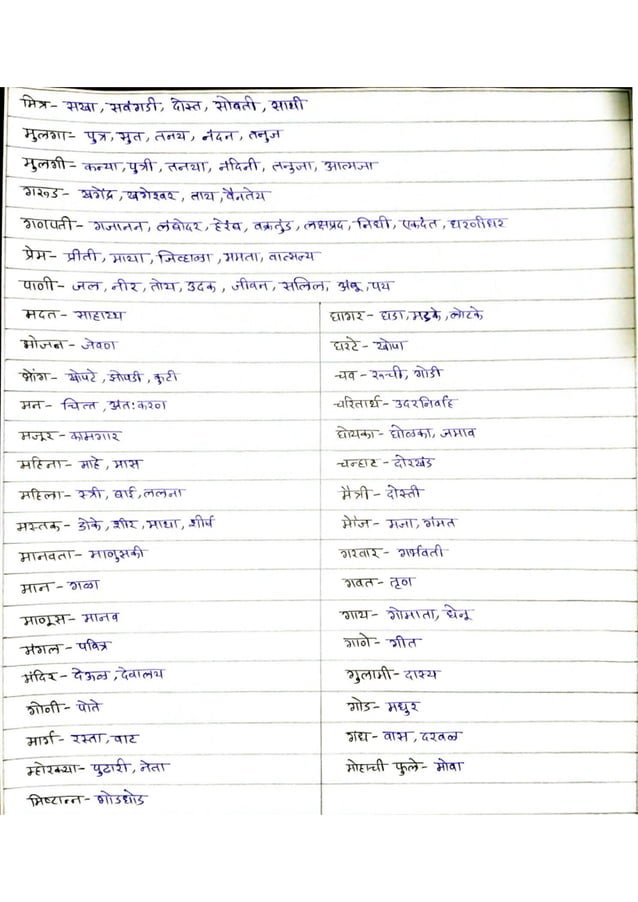 मित्र- सखा, सवंगडी, दोस्त, सोबती, साथी
मुलगा- पुत्र, सुत, तनय, नंदन, तनुज
मुलगी- कन्या, पुत्री, तनया, नंदिनी, तनुजा, आत्मजा
गरुड- खगेंद्र, खगेश्वर, ताय, वैनतेय
गणपती- गजानन, लंबोदर, हेरंब, वक्रतुंड, लक्षप्रद, निधी, एकदंत, धरणीधर
प्रेम- प्रीती, माया, जिव्हाळा, ममता, वात्सल्य
पाणी- जल, नीर, तोय, उदक, जीवन, सलिल, अंबू, पय
मदत- साहाय्य
भोजन- जेवण
खोपटे, झोपडी, कुटी
मन- चित्त, अंतःकरण
मजूर- कामगार
महिना- माहे, मास
महिला- स्त्री, बाई, ललना
मस्तक- डोके, शीर, माथा, शीर्ष
मानवता- माणुसकी
मान- गळा
माणूस- मानव
मंगल- पवित्र
मंदिर- देऊळ, देवालय
गोणी- पोते
मार्ग- रस्ता, वाट
म्होरक्या- पुढारी, नेता
मिष्टान्न- गोडधोड
घागर- घडा, मडके, लोटके
घरटे- खोपा
चव- रुची, गोडी
चरितार्थ- उदरनिर्वाह
घोयका- घोळका, जमाव
चऱ्हाट- दोरखंड
मैत्री- दोस्ती
मौज- मजा, गंमत
गरवार- गर्भवती
गवत- तृण
गाय- गोमाता, धेनू
गाणे- गीत
गुलामी- दास्य
गोड- मधुर
गंध- वास, दरवळ
मोहाची फुले- मोवा